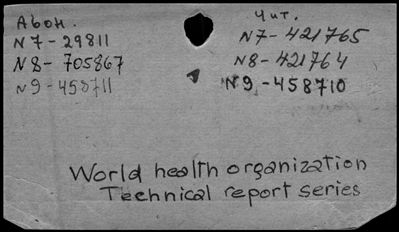 Абон.
N7-29811
N8-705867
N9-458711
Чит.
N7-421765
N8-421764
N9-458710
World health organization
Technical report series